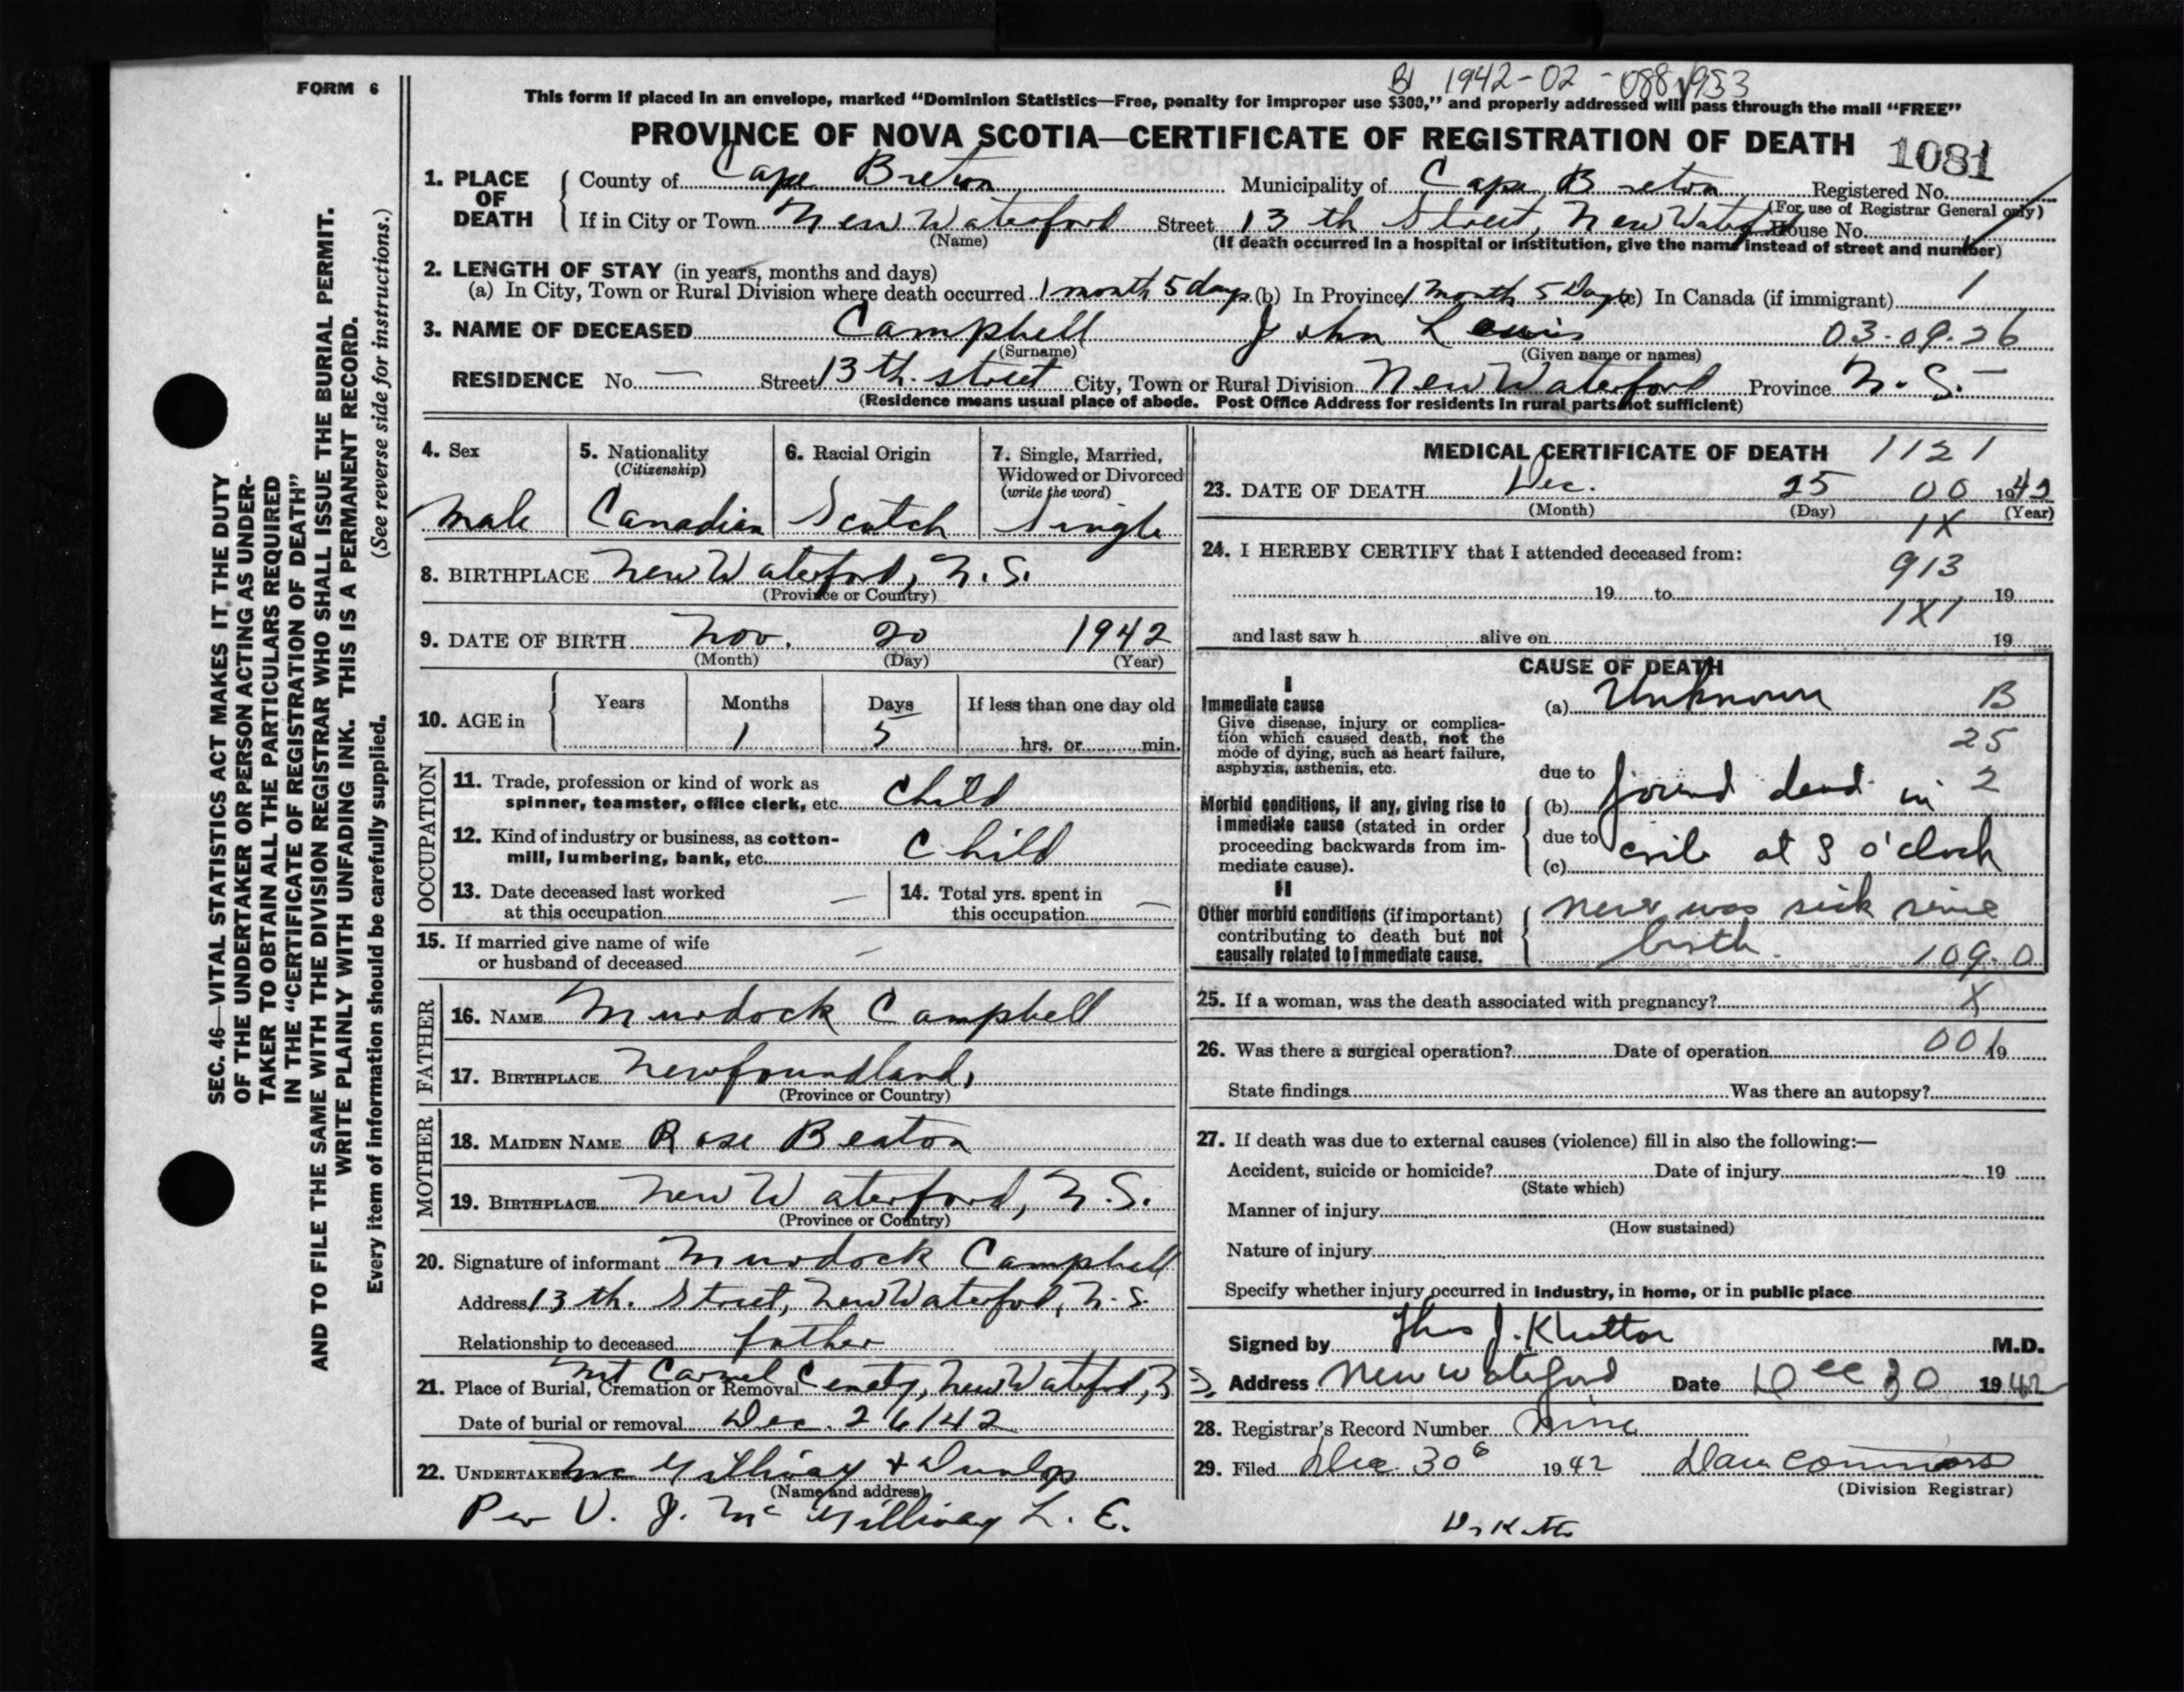 FORM 6
BI 1942-02-088953
This form if placed in an envelope, marked “Dominion Statistics—Free, penalty for improper use $300,” and properly addressed will pass through the mail “FREE”
PROVINCE OF NOVA SCOTIA—CERTIFICATE OF REGISTRATION OF DEATH 1081
1. PLACE OF DEATH County of Cape Breton Municipality of Cape Breton Registered No.
(For use of Registrar General only)
If in City or Town New Waterford Street 13 th Street, New Waterford House No.
(Name) (If death occurred in a hospital or institution, give the name instead of street and number)
2. LENGTH OF STAY (in years, months and days)
(a) In City, Town or Rural Division where death occurred 1 month 5 days (b) In Province 1 Month 5 Days (c) In Canada (if immigrant)
3. NAME OF DECEASED Campbell John Lewis 03-09-26
(Surname) (Given name or names)
RESIDENCE No. — Street 13 th. street City, Town or Rural Division New Waterford Province N. S. —
(Residence means usual place of abode. Post Office Address for residents in rural parts not sufficient)
4. Sex male
5. Nationality (Citizenship) Canadian
6. Racial Origin Scotch
7. Single, Married, Widowed or Divorced (write the word) Single
8. BIRTHPLACE New Waterford, N. S.
(Province or Country)
9. DATE OF BIRTH Nov. 20 1942
(Month) (Day) (Year)
10. AGE in Years Months Days If less than one day old
1 5 hrs. or min.
OCCUPATION
11. Trade, profession or kind of work as
spinner, teamster, office clerk, etc. Child
12. Kind of industry or business, as cotton-
mill, lumbering, bank, etc. Child
13. Date deceased last worked
at this occupation —
14. Total yrs. spent in
this occupation —
15. If married give name of wife
or husband of deceased —
FATHER
16. NAME Murdock Campbell
17. BIRTHPLACE Newfoundland,
(Province or Country)
MOTHER
18. MAIDEN NAME Rose Beaton
19. BIRTHPLACE New Waterford, N. S.
(Province or Country)
20. Signature of informant Murdock Campbell
Address 13 th. Street, New Waterford, N. S.
Relationship to deceased father
21. Place of Burial, Cremation or Removal Mt Carmel Cemety, New Wateford, N S,
Date of burial or removal Dec. 26/42
22. UNDERTAKER Mc Gillivray & Dunlop
(Name and address)
Per V. J. Mc Gillivray L. E.
MEDICAL CERTIFICATE OF DEATH 1121
23. DATE OF DEATH Dec. 25 00 1942
(Month) (Day) (Year)
1X
24. I HEREBY CERTIFY that I attended deceased from:
913
19 to 19
1X1
and last saw h alive on 19
CAUSE OF DEATH
I
Immediate cause
Give disease, injury or complica-
tion which caused death, not the
mode of dying, such as heart failure,
asphyxia, asthenia, etc.
(a) Unknown B
25
due to 2
Morbid conditions, if any, giving rise to
immediate cause (stated in order
proceeding backwards from im-
mediate cause).
(b) found dead in
due to
(c) crib at 8 o'clock
II
Other morbid conditions (if important)
contributing to death but not
causally related to immediate cause.
never was sick since
birth. 109.0
25. If a woman, was the death associated with pregnancy? X
26. Was there a surgical operation? Date of operation 001 19
State findings Was there an autopsy?
27. If death was due to external causes (violence) fill in also the following:—
Accident, suicide or homicide? Date of injury 19
(State which)
Manner of injury
(How sustained)
Nature of injury
Specify whether injury occurred in industry, in home, or in public place
Signed by Thos J. Khattar M.D.
Address New Waterford Date Dec 30 1942
28. Registrar's Record Number Nine
29. Filed Dec. 30 1942 Dan Connors
(Division Registrar)
SEC. 46—VITAL STATISTICS ACT MAKES IT THE DUTY
OF THE UNDERTAKER OR PERSON ACTING AS UNDER-
TAKER TO OBTAIN ALL THE PARTICULARS REQUIRED
IN THE “CERTIFICATE OF REGISTRATION OF DEATH”
AND TO FILE THE SAME WITH THE DIVISION REGISTRAR WHO SHALL ISSUE THE BURIAL PERMIT.
WRITE PLAINLY WITH UNFADING INK. THIS IS A PERMANENT RECORD.
Every item of information should be carefully supplied. (See reverse side for instructions.)